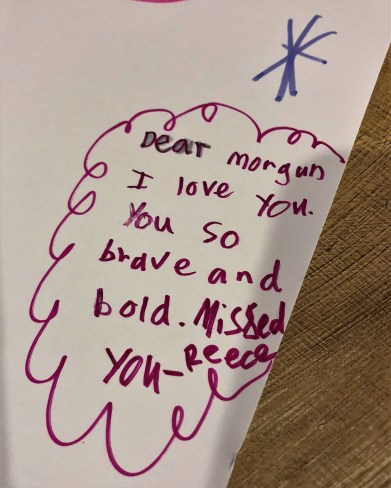 Dear morgun
I love you.
You so
brave and
bold. Missed
you-Reece